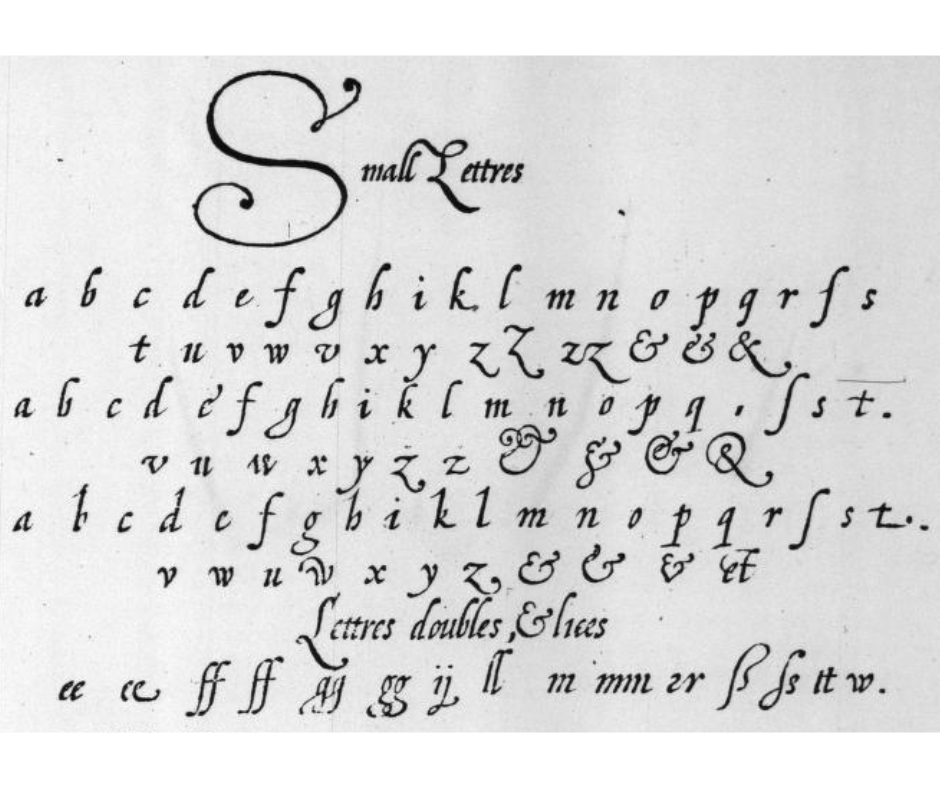 Small Lettres
a b c d e f g h i k l m n o p q r ſ s
t u v w v x y z Z zz & & &
a b c d e f g h i k l m n o p q . ſ s t.
v u w x y z z & & & &
a b c d e f g h i k l m n o p q r ſ s t.
v w u w x y z & & & et
Lettres doubles, & liees
ee ee ff ff gg gg ij ll m mm rr ſs ſs tt w.